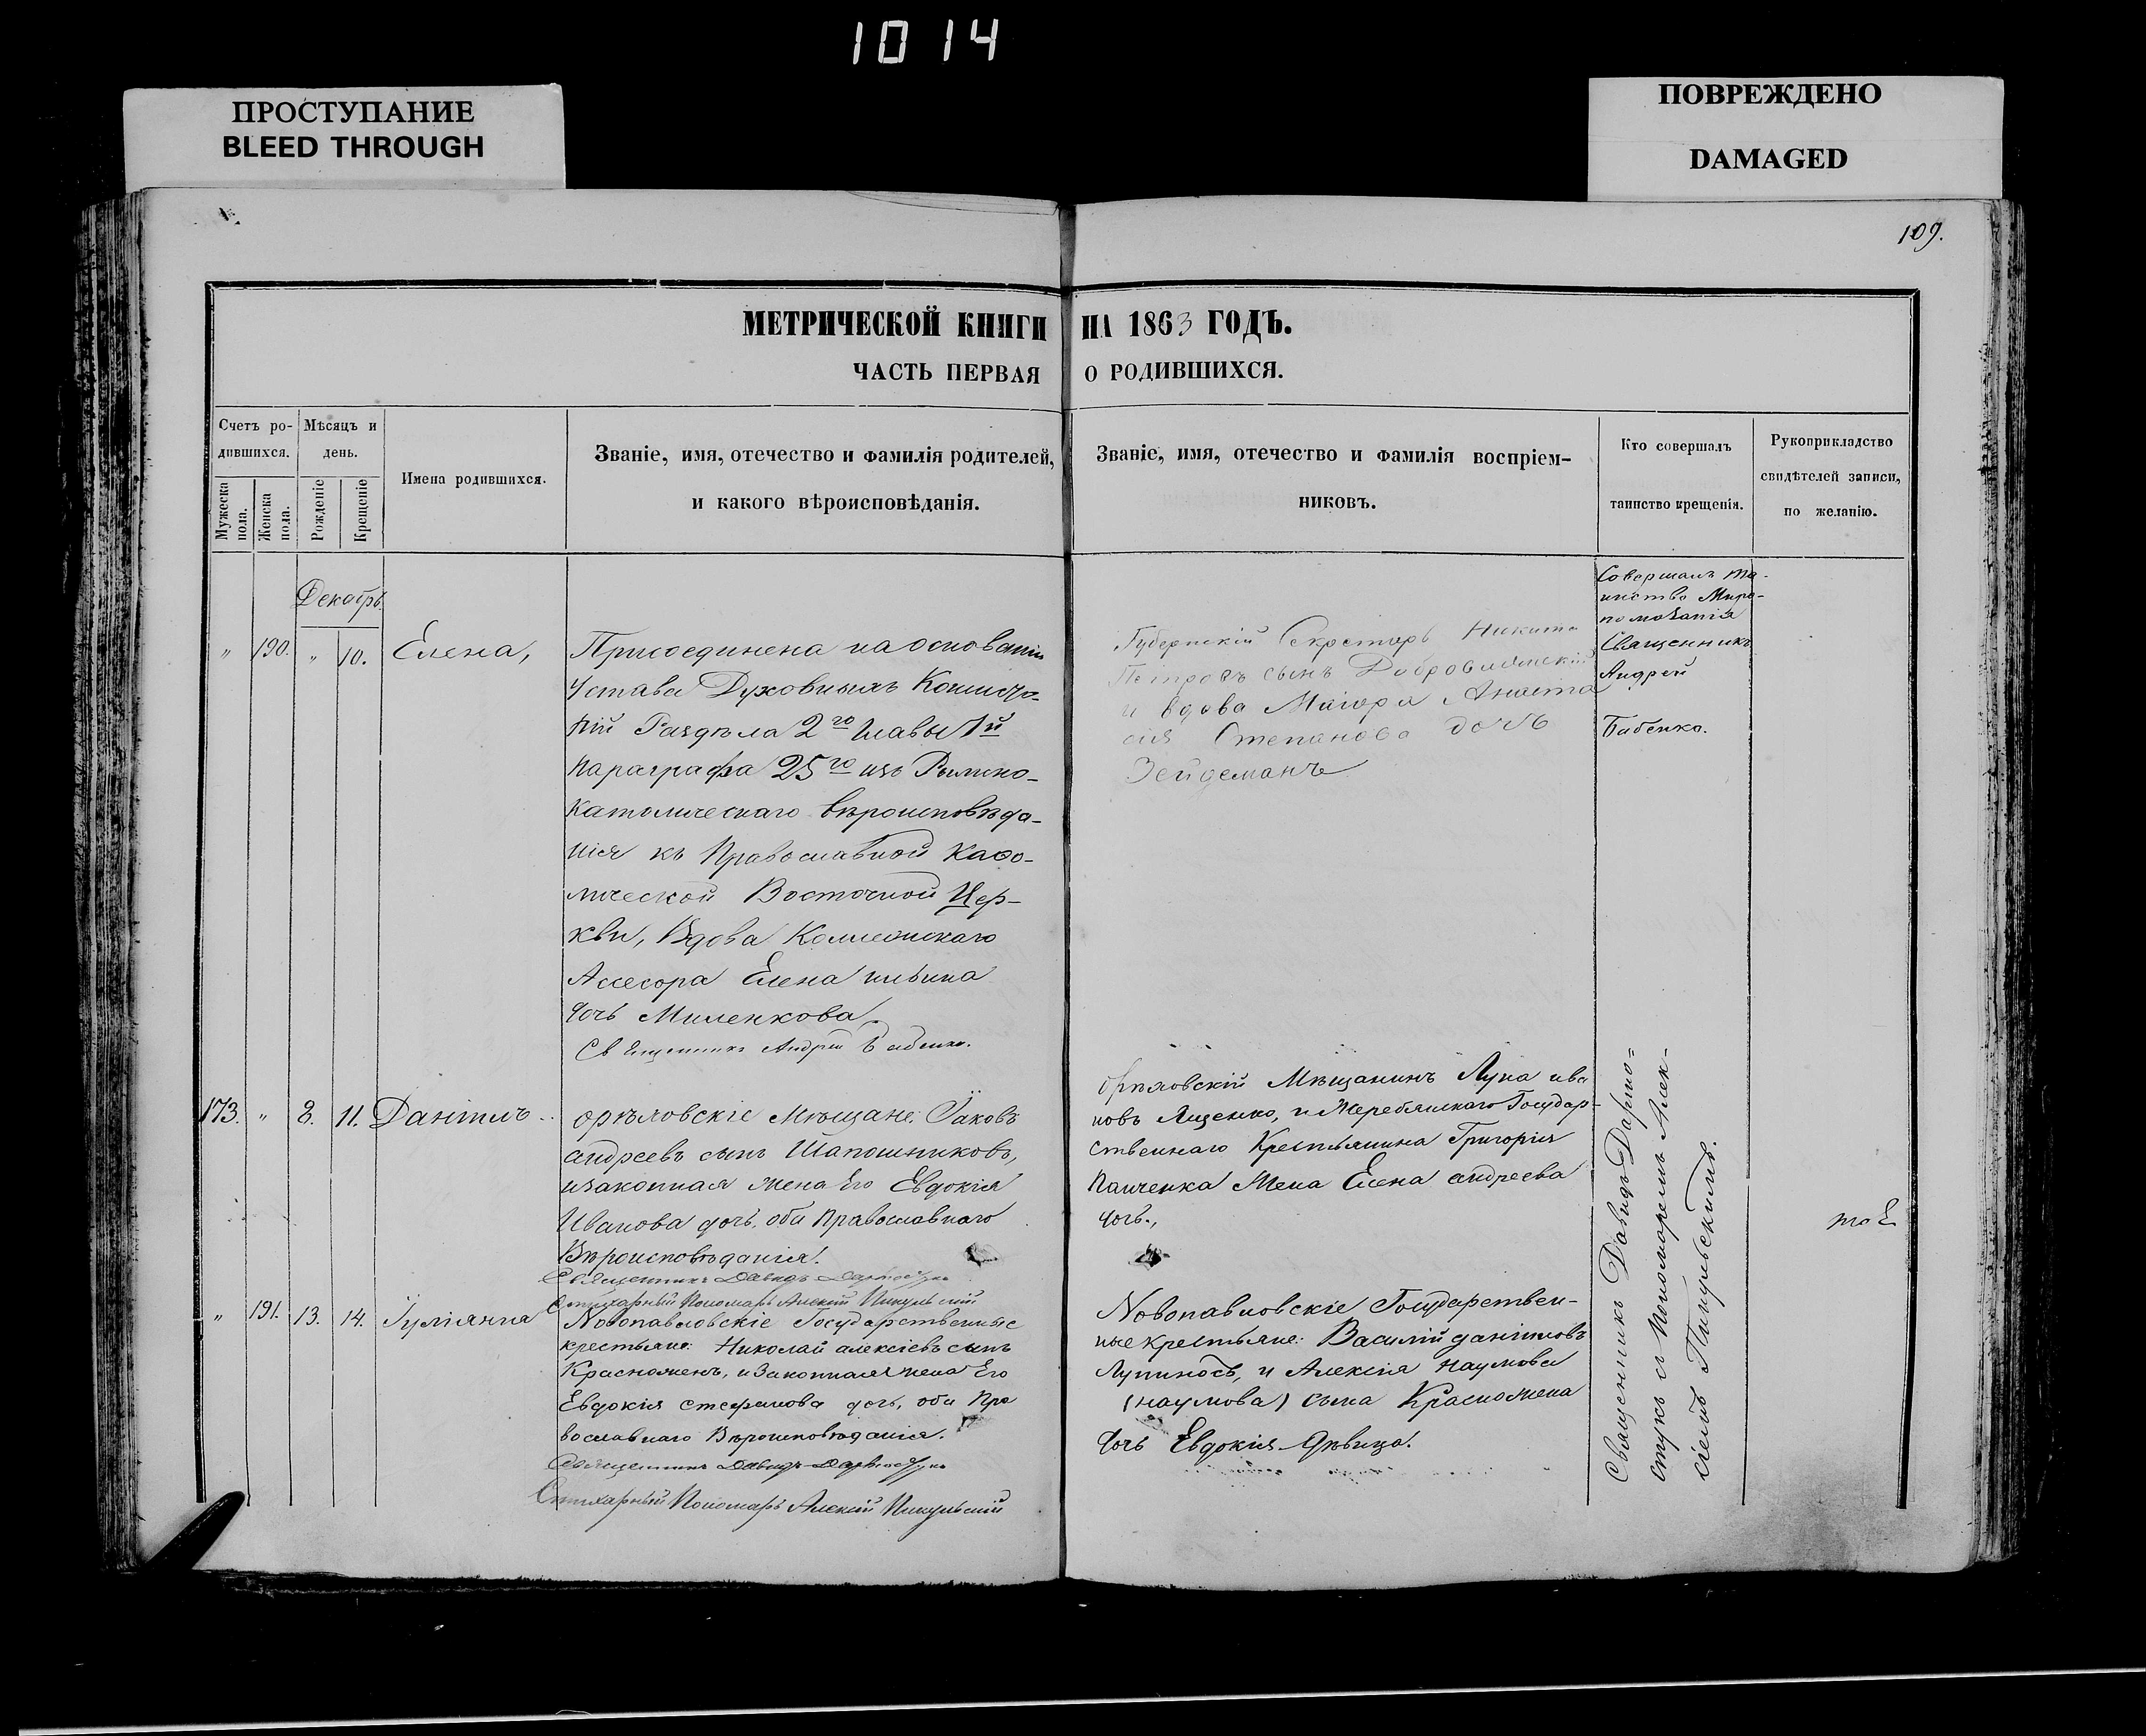 1014
ПРОСТУПАНИЕ
BLEED THROUGH
ПОВРЕЖДЕНО
DAMAGED
109.
МЕТРИЧЕСКОЙ КНИГИ НА 1863 ГОДЪ.
ЧАСТЬ ПЕРВАЯ О РОДИВШИХСЯ.
Счетъ ро-
дившихся.
Мужеска
пола.
Женска
пола.
Мѣсяцъ и
день.
Рожденіе
Крещеніе
Имена родившихся.
Званіе, имя, отечество и фамилія родителей,
и какого вѣроисповѣданія.
Званіе, имя, отечество и фамилія воспріем-
никовъ.
Кто совершалъ
таинство крещенія.
Рукоприкладство
свидѣтелей записи,
по желанію.
Декабрь
" 190. " 10. Елена,
Присоединена на основаніи
Устава Духовныхъ Консисто-
рій Раздѣла 2го Главы 1й
параграфа 25го изъ Римско-
католическаго вѣроисповѣда-
нія къ Православной Каѳо-
лической Восточной Цер-
кви, Вдова Коллежскаго
Ассесора Елена ильина
дочь Миленкова,
Священникъ Андрей Бабенко.
Губернскій Секретарь Никита
Петровъ сынъ Доброволямскій
и вдова Маіора Анаста
сія Степанова дочь
Зейдеманъ
Совершалъ та-
инство Миро-
помазанія
Священникъ
Андрей
Бабенко.
173. " 8. 11. Даніилъ
орѣховскіе Мѣщане: Іаковъ
андреевъ сынъ Шапошниковъ,
изаконная жена Его Евдокія
Иванова дочь, оба православнаго
Вѣроисповѣданія.
Священникъ Давидъ
Стихарный Пономарь Алексій Пикульскій
орѣховскій Мѣщанинъ Лука ива
новъ Яценко, и Жеребянскаго Государ-
ственнаго Крестьянина Григорія
Панченка Жена Елена андреева
дочь.,
" 191. 13. 14. Іуліанна
Новопавловскіе Государственные
крестьяне: Николай алексіевъ сынъ
Красножонъ, и Законная жена Его
Евдокія стефанова дочь, оба Пра
вославнаго Вѣроисповѣданія.
Священникъ Давидъ
Стихарный Пономарь Алексій Пикульскій
Новопавловскіе Государствен-
ные крестьяне: Василій даніиловъ
и Алексія наумова
(наумова) сына Красножена
дочь Евдокія Дѣвица.
Священникъ Давидъ Дарно-
стукъ съ Пономаремъ Алек-
сіемъ Пикульскимъ.